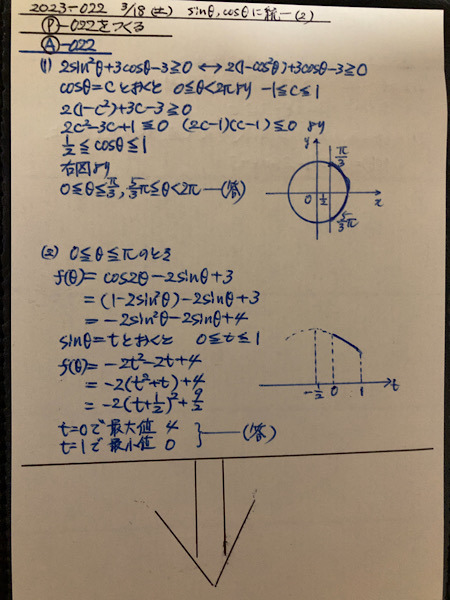 2023-022 3/18(土) sinθ, cosθに統一(2)
Ⓟ-022をつくる
Ⓐ-022
(1) 2sin²θ+3cosθ-3≧0 ↔ 2(1-cos²θ)+3cosθ-3≧0
cosθ=Cとおくと 0≦θ<2πより -1≦C≦1
2(1-C²)+3C-3≧0
2C²-3C+1≦0 (2C-1)(C-1)≦0 より
1/2≦cosθ≦1
右図より
0≦θ≦π/3, 5/3π≦θ<2π —(答)
y π/3
0 1/2 x
5/3π
(2) 0≦θ≦πのとき
f(θ)= cos2θ-2sinθ+3
= (1-2sin²θ)-2sinθ+3
= -2sin²θ-2sinθ+4
sinθ=tとおくと 0≦t≦1
f(θ)= -2t²-2t+4
= -2(t²+t)+4
= -2(t+1/2)²+9/2
t=0で最大値 4
t=1で最小値 0 —(答)
-1/2 0 1 t